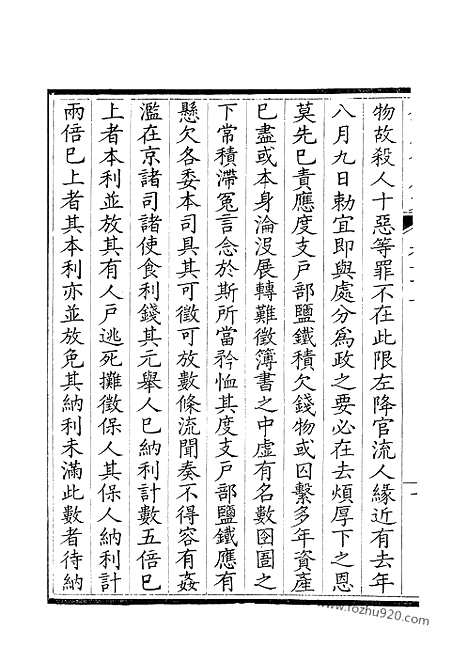 物故殺人十惡等罪不在此限左降官流人緣近有去年
八月九日勅宜即與處分為政之要必在去煩厚下之恩
莫先已責應度支戶部鹽鐵積欠錢物或囚繫多年資產
已盡或本身淪沒展轉難徵簿書之中虛有名數囹圄之
下常積滯冤言念於斯所當矜恤其度支戶部鹽鐵應有
懸欠各委本司具其可徵可放數條流聞奏不得容有姦
濫在京諸司諸使食利錢其元舉人已納利計數五倍已
上者本利並放其有人戶逃死攤徵保人其保人納利計
兩倍已上者其本利亦並放免其納利未滿此數者待納
www.fozhu920.com